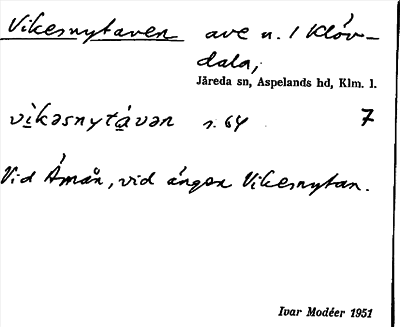 Vikesnytaven ave u. 1 Klöv-
dala,
Järeda sn, Aspelands hd, Klm. l.
vìkəsnytávən s. 64 7
Vid Åmån, vid ängen Vikesnytan.
Ivar Modéer 1951